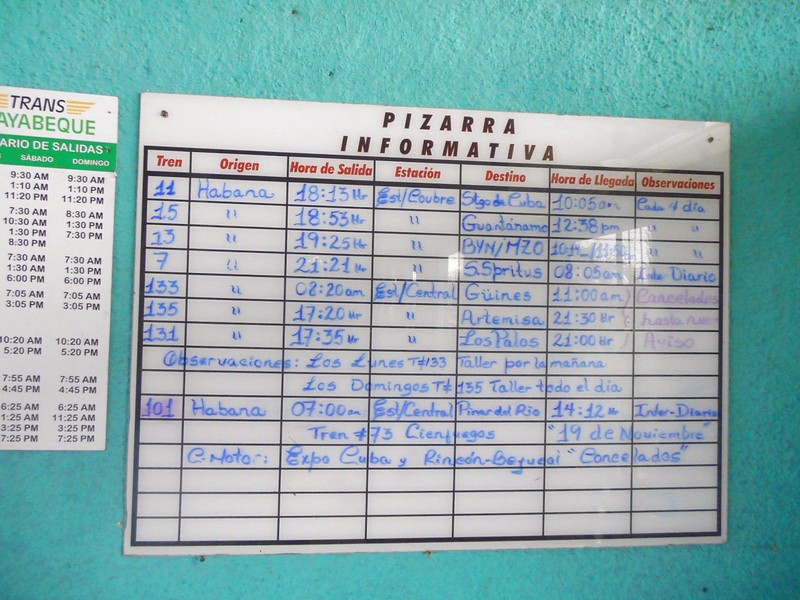 TRANS
AYABEQUE
ARIO DE SALIDAS
SÁBADO DOMINGO
9:30 AM 9:30 AM
1:10 AM 1:10 PM
11:20 PM 11:20 PM
7:30 AM 8:30 AM
10:30 AM 1:30 PM
1:30 PM 7:30 PM
8:30 PM
7:30 AM 7:30 AM
1:30 AM 1:30 PM
6:00 PM 6:00 PM
7:05 AM 7:05 AM
3:05 PM 3:05 PM
10:20 AM 10:20 AM
5:20 PM 5:20 PM
7:55 AM 7:55 AM
4:45 PM 4:45 PM
6:25 AM 6:25 AM
11:25 AM 11:25 AM
3:25 PM 3:25 PM
7:25 PM 7:25 PM
PIZARRA
INFORMATIVA
Tren Origen Hora de Salida Estación Destino Hora de Llegada Observaciones
11 Habana 18:13 Hr Est/Coubre Stgo de Cuba 10:05 am Cada 4 dia
15 " 18:53 Hr " Guantánamo 12:38 pm " "
13 " 19:25 Hr " BYN/MZO " "
7 " 21:21 Hr " S.Spritus 08:05 am Inter Diario
133 " 08:20 am Est/Central Güines 11:00 am Cancelados
135 " 17:20 Hr " Artemisa 21:30 Hr hasta
131 " 17:35 Hr " Los Palos 21:00 Hr Aviso
Observaciones: Los Lunes T#133 Taller por la mañana
Los Domingos T# 135 Taller todo el dia
101 Habana 07:00 am Est/Central Pinar del Rio 14:12 Hr Inter-Diario
Tren #73 Cienfuegos "19 de Noviembre"
C-Motor: Expo Cuba y Rincón- "Cancelados"